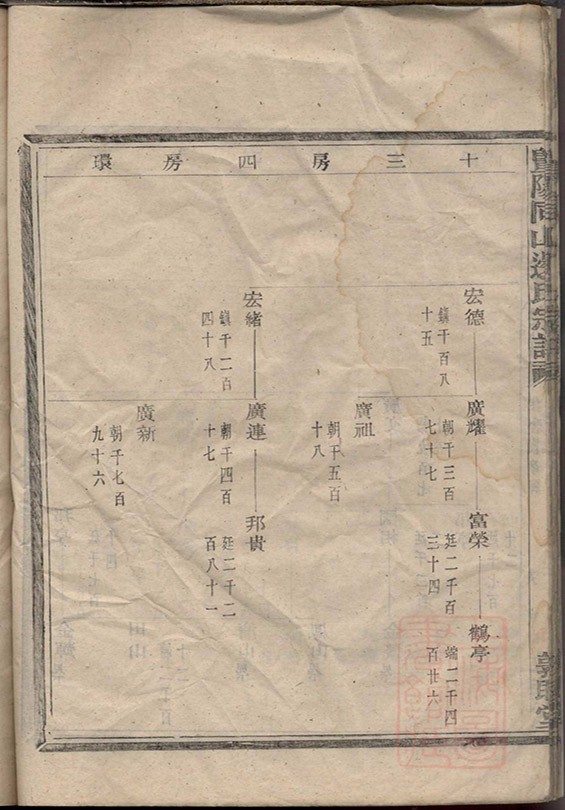 暨陽同山邊氏宗譜
十三房四房環
宏德
鎮千百八
十五
廣耀
朝千三百
七十七
富榮
廷二千百
三十四
鶴亭
端二千四
百廿六
廣祖
朝千五百
十八
宏緒
鎮千二百
四十八
廣連
朝千四百
十七
邦貴
廷二千二
百八十一
廣新
朝千七百
九十六